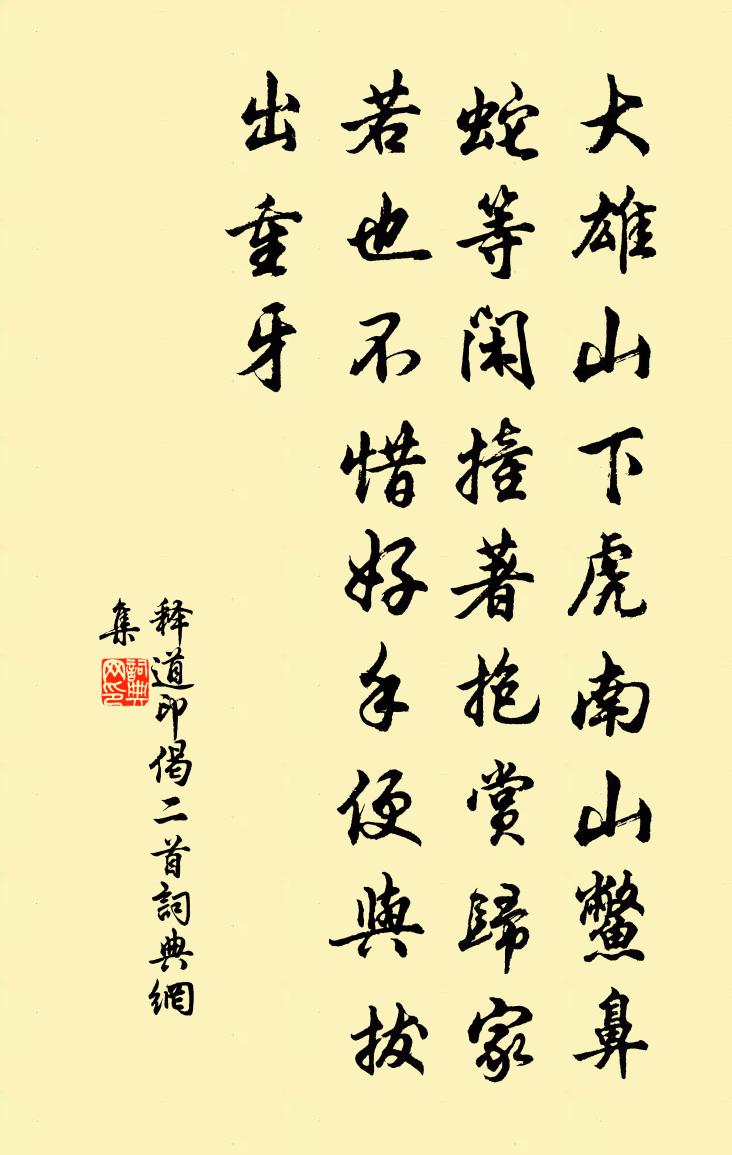 大雄山下虎南山鱉鼻
蛇等閑撞著抱賞歸家
若也不惜好手便與拔
出重牙
釋道印偈二首詞典網
集
詞典網印